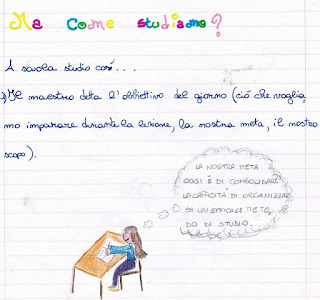 Ma come studiamo?
A scuola studio così...
Il maestro detta l'obbiettivo del giorno (ciò che voglia
mo imparare durante la lezione, la nostra meta, il nostro
scopo).
LA NOSTRA META
OGGI È DI CONSOLIDARE
LA CAPACITÀ DI ORGANIZZAR
SI UN EFFICACE METO
DO DI STUDIO.